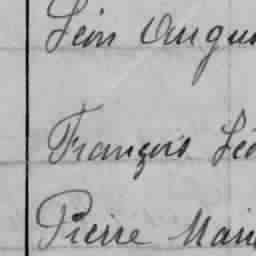 Léon Augus
François Léo
Pierre Mari